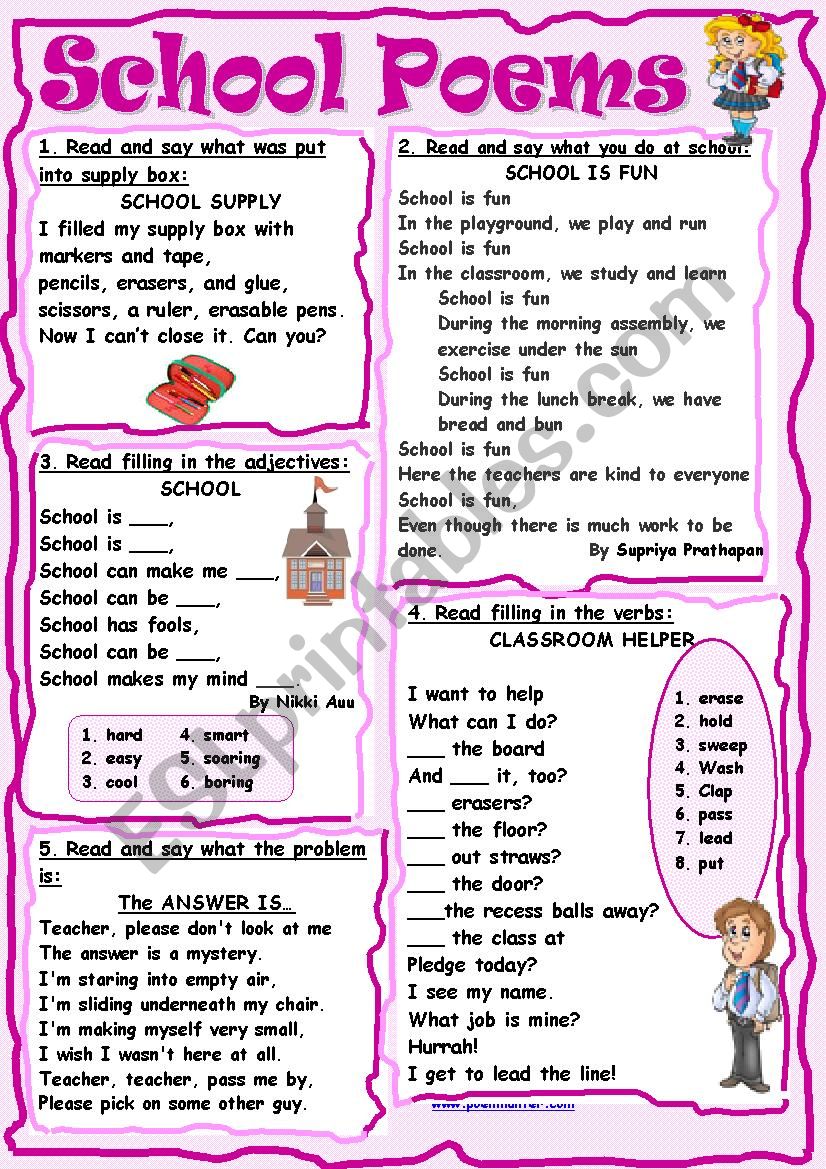 School Poems
1. Read and say what was put
into supply box:
SCHOOL SUPPLY
I filled my supply box with
markers and tape,
pencils, erasers, and glue,
scissors, a ruler, erasable pens.
Now I can't close it. Can you?
2. Read and say what you do at school:
SCHOOL IS FUN
School is fun
In the playground, we play and run
School is fun
In the classroom, we study and learn
School is fun
During the morning assembly, we
exercise under the sun
School is fun
During the lunch break, we have
bread and bun
School is fun
Here the teachers are kind to everyone
School is fun,
Even though there is much work to be
done. By Supriya Prathapan
3. Read filling in the adjectives:
SCHOOL
School is ___,
School is ___,
School can make me ___,
School can be ___,
School has fools,
School can be ___,
School makes my mind ___.
By Nikki Auu
1. hard 4. smart
2. easy 5. soaring
3. cool 6. boring
4. Read filling in the verbs:
CLASSROOM HELPER
I want to help
What can I do?
___ the board
And ___ it, too?
___ erasers?
___ the floor?
___ out straws?
___ the door?
___the recess balls away?
___ the class at
Pledge today?
I see my name.
What job is mine?
Hurrah!
I get to lead the line!
1. erase
2. hold
3. sweep
4. Wash
5. Clap
6. pass
7. lead
8. put
www.poemhunter.com
5. Read and say what the problem
is:
The ANSWER IS…
Teacher, please don't look at me
The answer is a mystery.
I'm staring into empty air,
I'm sliding underneath my chair.
I'm making myself very small,
I wish I wasn't here at all.
Teacher, teacher, pass me by,
Please pick on some other guy.
ESLprintables.com